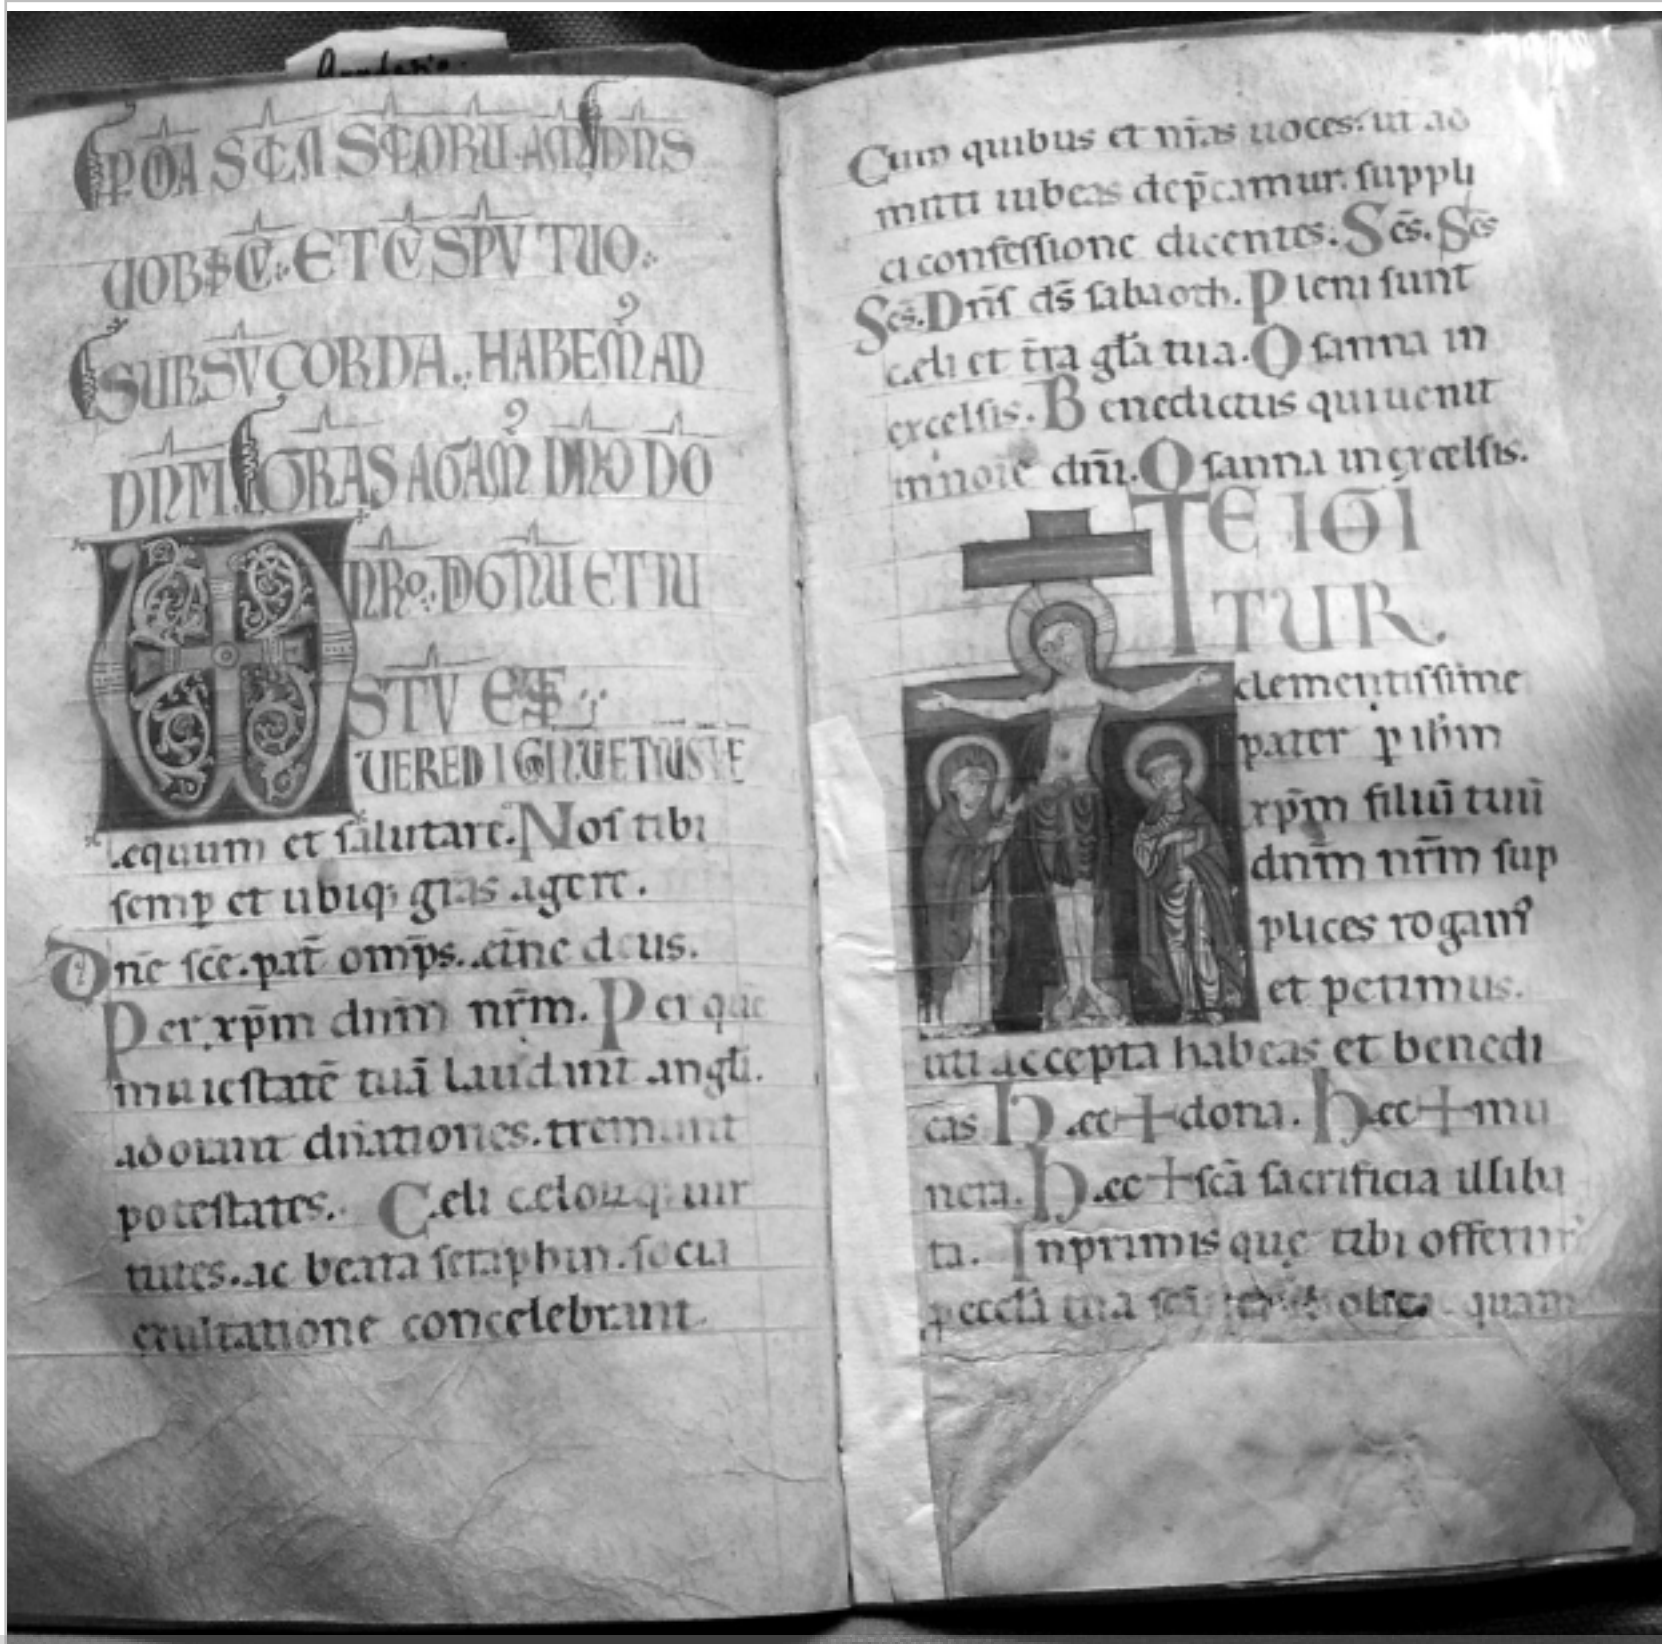 P OĪA SCLA SCLORU. AM̄ DN̄S
UOBSCŪ. ET CŪ SPŪ TUO.
SURSŪ CORDA. HABEMꝰ AD
DN̄M. GRAS AGAMꝰ DN̄O DO
NR̄O. DIGNŪ ET IU
STŪ EST
UERE DIGNŪ ET IUSTŪ Ē
equum et salutare. Nos tibi
semꝑ et ubiqꝫ gras agere.
Dn̄e sc̄e. pat̄ omp̄s. et̄ne deus.
Per xp̄m dn̄m nr̄m. Per quē
maiestatē tuā laudant angl̄i.
adorant dn̄ationes. tremunt
potestates. Cęli cęloꝝqꝫ uir
tutes. ac beata seraphin. socia
exultatione concelebrant.
Cum quibus et nr̄as uoces. ut ad
mitti iubeas dep̄camur. suppli
ci confessione dicentes. Sc̄s. Sc̄s
Sc̄s. Dn̄s d̄s sabaoth. Pleni sunt
cęli et t̄ra gl̄a tua. Osanna in
excelsis. Benedictus qui uenit
in noīe dn̄i. Osanna in excelsis.
TE IGI
TUR
clementissime
pater ꝑ ih̄m
xp̄m filiū tuū
dn̄m nr̄m sup
plices rogamꝰ
et petimus.
uti accepta habeas et benedi
cas Hęc + dona. Hęc + mu
nera. Hęc + sc̄a sacrificia illiba
ta. Inprimis quę tibi offerim
ꝑ eccl̄a tua sc̄a quam